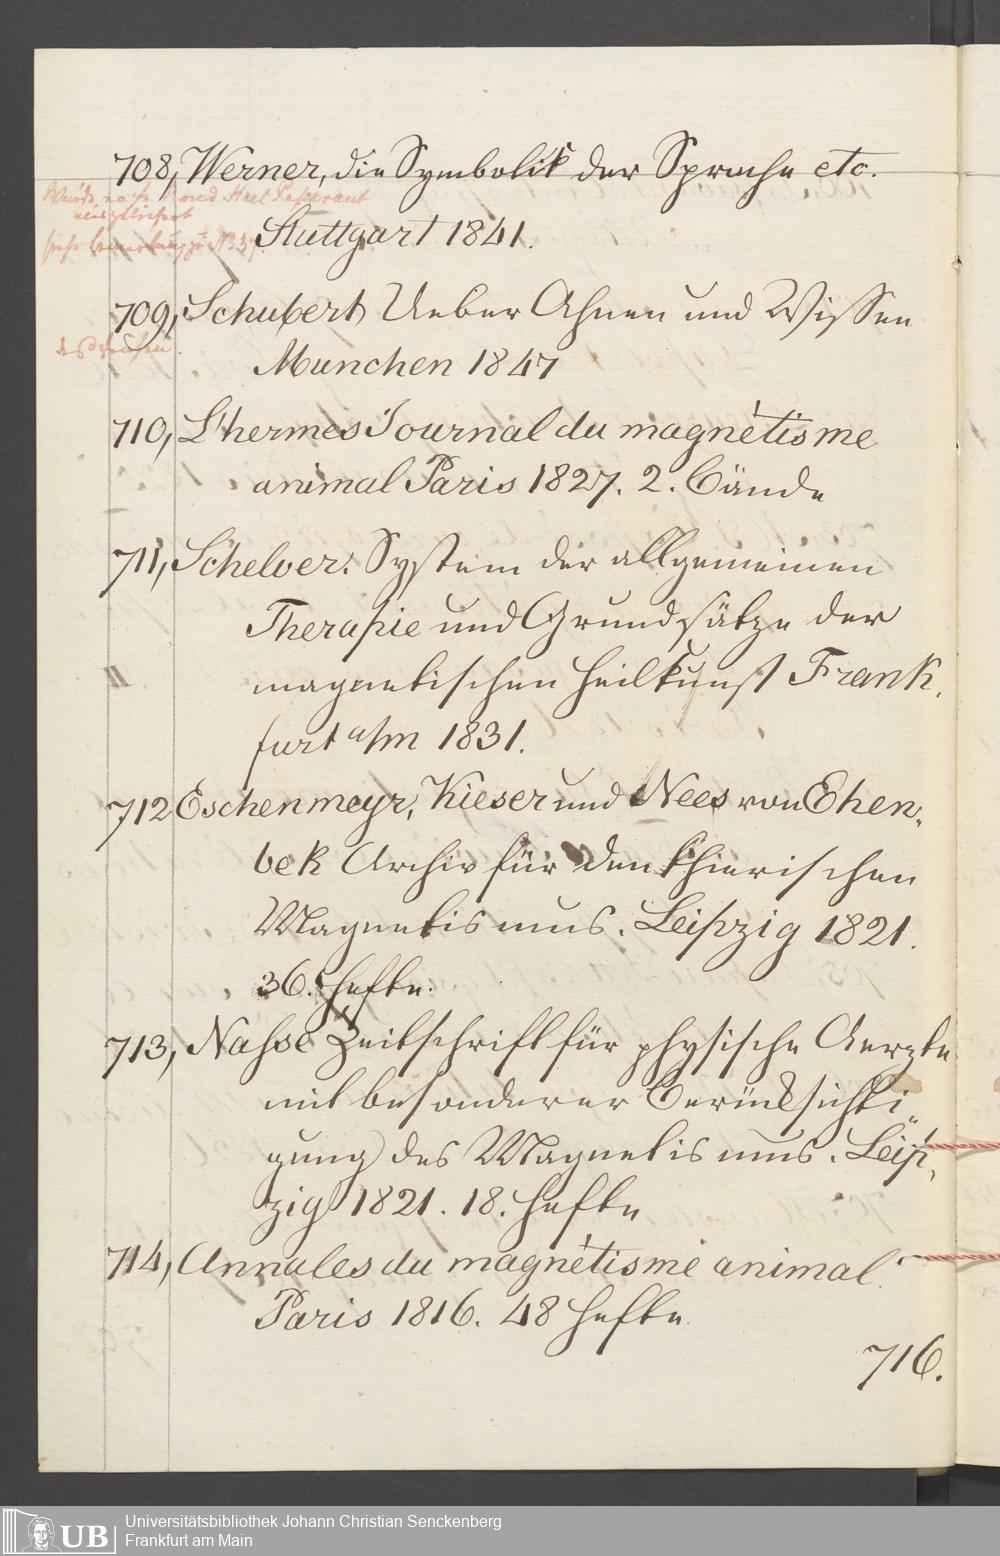 708, Werner, die Symbolik der Sprache etc.
Stuttgart 1841.
709, Schubert Ueber Ahnen und Wissen
desgleichen
Munchen 1847
710, L'hermes Journal du magnétisme
animal Paris 1827. 2. Bände
711, Schelver. System der allgemeinen
Therapie und Grundsätze der
magnetischen Heilkunst Frank,
furt a/m 1831.
712 Eschenmayr, Kieser und Nees von Ehen,
bek Archiv für den thierischen
Magnetismus. Leipzig 1821.
36. Hefte.
713, Nasse Zeitschrift für physische Aerzte
mit besonderer Berücksichti„
gung des Magnetismus. Leip,
zig 1821. 18. Hefte
714, Annales du magnétisme animal.
Paris 1816. 48 Hefte
716.
UB
Universitätsbibliothek Johann Christian Senckenberg
Frankfurt am Main